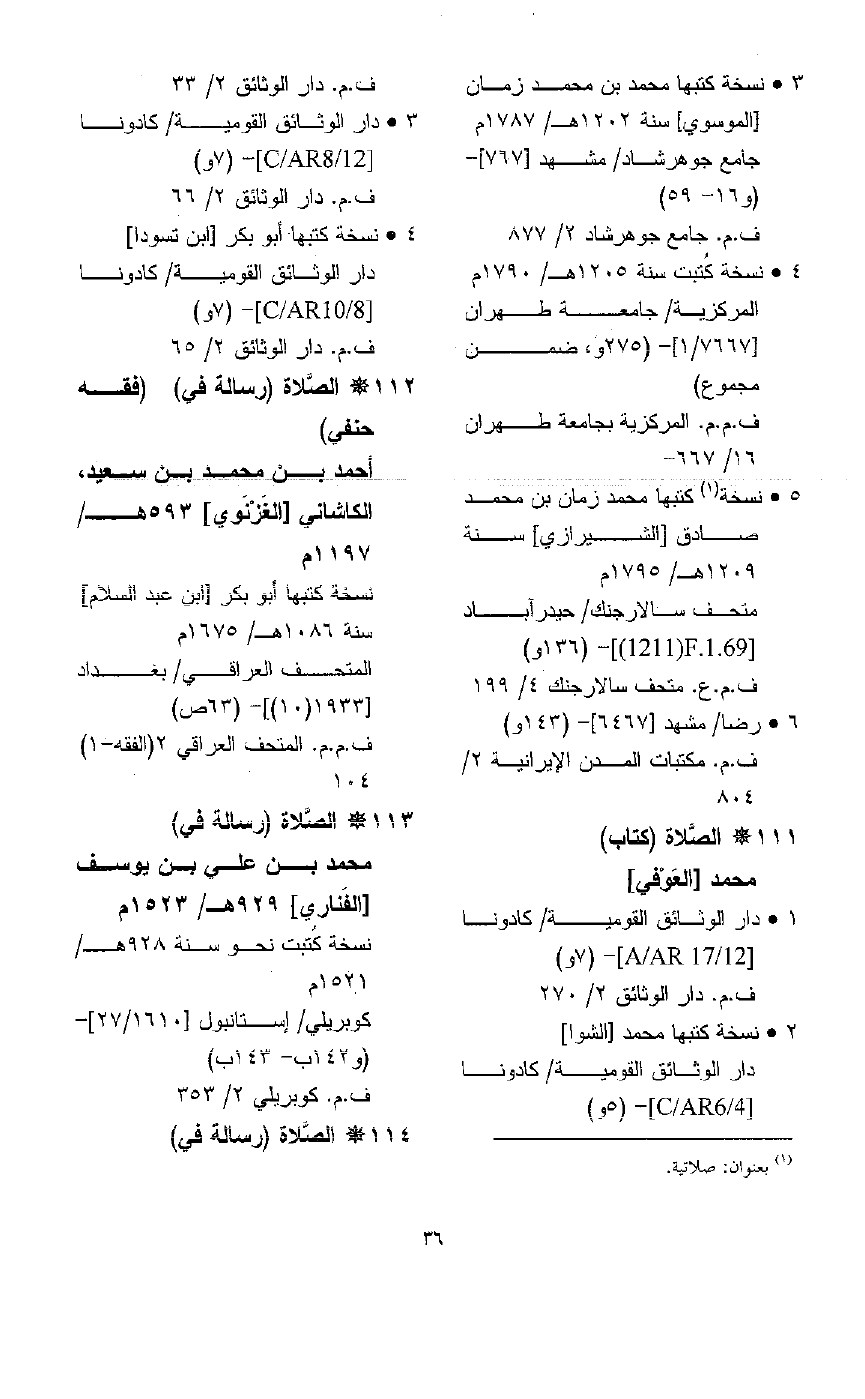 ٣ • نسخة كتبها محمد بن محمد زمان
[الموسوي] سنة ١٢٠٢هـ/ ١٧٨٧م
جامع جوهرشاد/ مشهد [٧٦٧]-
(و١٦- ٥٩)
ف.م. جامع جوهرشاد ٢/ ٨٧٧
٤ • نسخة كُتبت سنة ١٢٠٥هـ/ ١٧٩٠م
المركزية/ جامعة طهران
[١/٧٦٦٧]- (٢٧٥و، ضمن
مجموع)
ف.م.م. المركزية بجامعة طهران
١٦/ ٦٦٧-
٥ • نسخة(١) كتبها محمد زمان بن محمد
صادق [الشيرازي] سنة
١٢٠٩هـ/ ١٧٩٥م
متحف سالارجنك/ حيدرآباد
[1211)F.1.69)]- (١٣٦و)
ف.م.ع. متحف سالارجنك ٤/ ١٩٩
٦ • رضا/ مشهد [٦٤٦٧]- (١٤٣و)
ف.م. مكتبات المدن الإيرانية ٢/
٨٠٤
١١١ ❋ الصَّلاة (كتاب)
محمد [العَوْفي]
١ • دار الوثائق القومية/ كادونا
[A/AR 17/12]- (٧و)
ف.م. دار الوثائق ٢/ ٢٧٠
٢ • نسخة كتبها محمد [الشوا]
دار الوثائق القومية/ كادونا
[C/AR6/4]- (٥و)
(١) بعنوان: صلاتية.
ف.م. دار الوثائق ٢/ ٣٣
٣ • دار الوثائق القومية/ كادونا
[C/AR8/12]- (٧و)
ف.م. دار الوثائق ٢/ ٦٦
٤ • نسخة كتبها أبو بكر [ابن تسودا]
دار الوثائق القومية/ كادونا
[C/AR10/8]- (٧و)
ف.م. دار الوثائق ٢/ ٦٥
١١٢ ❋ الصَّلاة (رسالة في) (فقه
حنفي)
أحمد بن محمد بن سعيد،
الكاشاني [الغَزْنَوي] ٥٩٣هـ/
١١٩٧م
نسخة كتبها أبو بكر [ابن عبد السلام]
سنة ١٠٨٦هـ/ ١٦٧٥م
المتحف العراقي/ بغداد
[١٩٣٣(١٠)]- (٦٣ص)
ف.م.م. المتحف العراقي ٢(الفقه-١)
١٠٤
١١٣ ❋ الصَّلاة (رسالة في)
محمد بن علي بن يوسف
[الفَناري] ٩٢٩هـ/ ١٥٢٣م
نسخة كُتبت نحو سنة ٩٢٨هـ/
١٥٢١م
كوبريلي/ إستانبول [٢٧/١٦١٠]-
(و١٤٢ب- ١٤٣ب)
ف.م. كوبريلي ٢/ ٣٥٣
١١٤ ❋ الصَّلاة (رسالة في)
٣٦